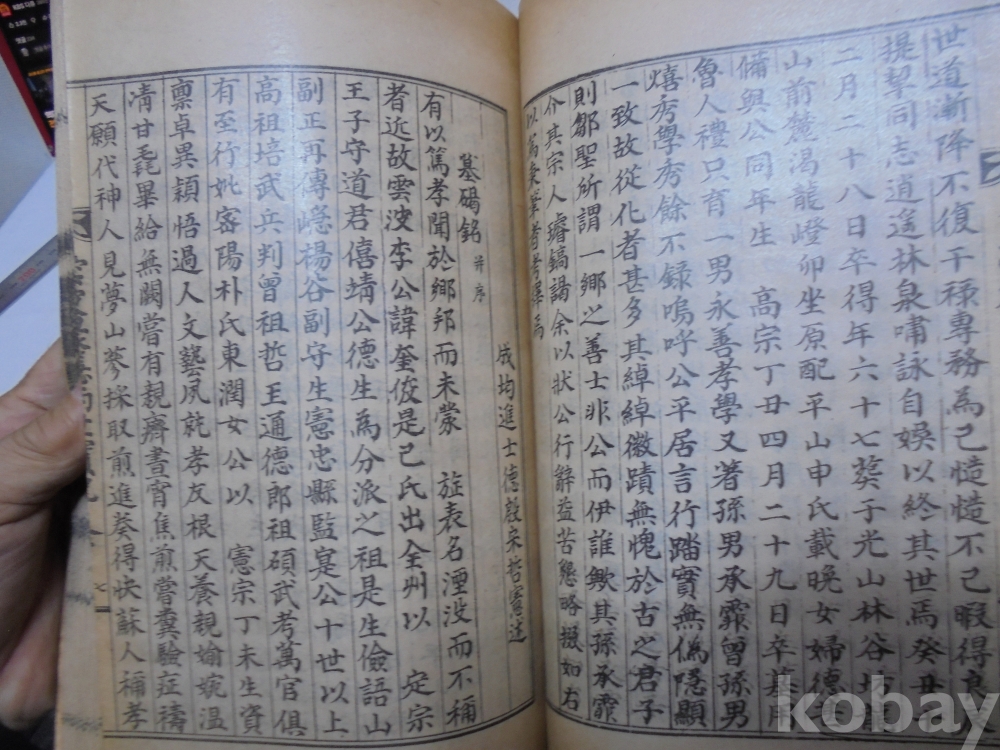 世道漸降不復干祿專務為己慥慥不已暇得良
提挈同志逍遙林泉嘯詠自娛以終其世焉癸丑
二月二十八日卒得年六十七葬于光山林谷
山前麓渴龍嶝卯坐原配平山申氏載晚女婦德
備與公同年生 高宗丁丑四月二十九日卒墓
魯人禮只育一男永善孝學又著孫男承霏曾孫男
熺秀學秀餘不錄嗚呼公平居言行踏實無偽隱顯
一致故從化者甚多其綽綽徽蹟無愧於古之君子
則鄒聖所謂一鄉之善士非公而伊誰歟其孫承霏
介其宗人璿鎬謁余以狀公行辭益苦懇略掇如右
以 者考擇焉
墓碣銘 并序
成均進士德殷宋哲憲述
有以篤孝聞於鄉邦而未蒙 旌表名湮没而不稱
者近故雲波李公諱奎俊是已氏出全州以 定宗
王子守道君僖靖公德生為分派之祖是生儉語山
副正再傳嶾楊谷副守生憲忠縣監寔公十世以上
高祖培武兵判曾祖哲王通德郎祖碩武考萬官俱
有至行妣密陽朴氏東潤女公以 憲宗丁未生資
禀卓異穎悟過人文藝夙就孝友根天養親婾婉溫
凊甘毳畢給無闕嘗有親癠晝宵焦煎嘗糞驗症禱
天願代神人見夢山蔘採取煎進葵得快蘇人稱孝
kobay